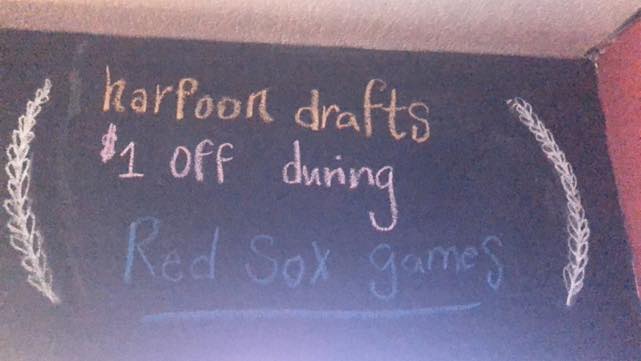 harpoon drafts
$1 off during
Red Sox games